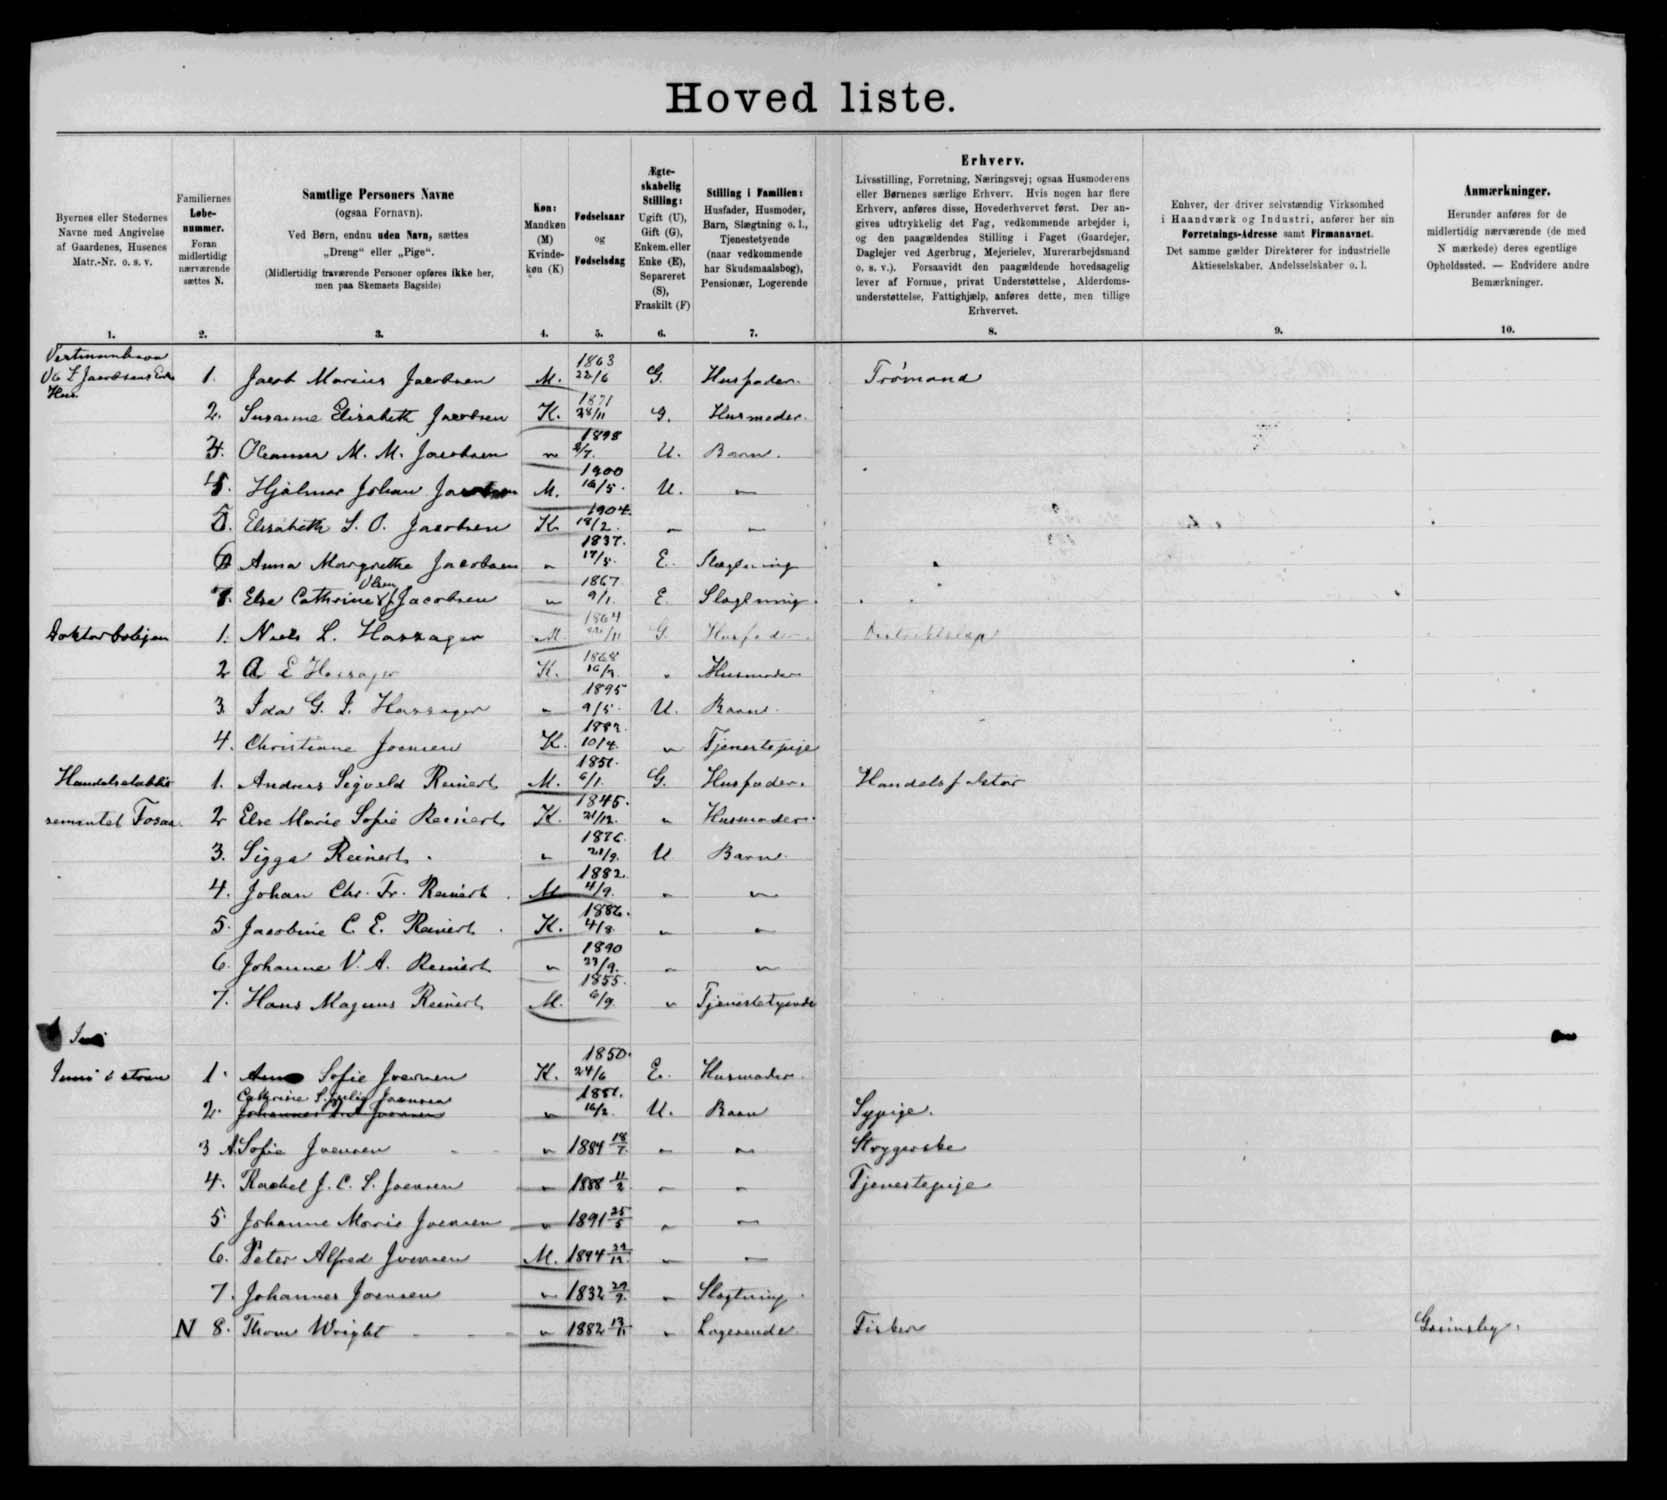 Hoved liste.
Byernes eller Stedernes
Navne med Angivelse
af Gaardenes, Husenes
Matr.-Nr. o. s. v.
1.
Familiernes
Løbe-
nummer.
Foran
midlertidig
nærværende
sættes N.
2.
Samtlige Personers Navne
(ogsaa Fornavn).
Ved Børn, endnu uden Navn, sættes
„Dreng“ eller „Pige“.
(Midlertidig fraværende Personer opføres ikke her,
men paa Skemaets Bagside)
3.
Køn:
Mandkøn
(M)
Kvinde-
køn (K)
4.
Fødselsaar
og
Fødselsdag
5.
Ægte-
skabelig
Stilling:
Ugift (U),
Gift (G),
Enkem. eller
Enke (E),
Separeret
(S),
Fraskilt (F)
6.
Stilling i Familien:
Husfader, Husmoder,
Barn, Slægtning o. l.,
Tjenestetyende
(naar vedkommende
har Skudsmaalsbog),
Pensionær, Logerende
7.
Erhverv.
Livsstilling, Forretning, Næringsvej; ogsaa Husmoderens
eller Børnenes særlige Erhverv. Hvis nogen har flere
Erhverv, anføres disse, Hovederhvervet først. Der an-
gives udtrykkelig det Fag, vedkommende arbejder i,
og den paagældendes Stilling i Faget (Gaardejer,
Daglejer ved Agerbrug, Mejerielev, Murerarbejdsmand
o. s. v.). Forsaavidt den paagældende hovedsagelig
lever af Formue, privat Understøttelse, Alderdoms-
understøttelse, Fattighjælp, anføres dette, men tillige
Erhvervet.
8.
Enhver, der driver selvstændig Virksomhed
i Haandværk og Industri, anfører her sin
Forretnings-Adresse samt Firmanavnet.
Det samme gælder Direktører for industrielle
Aktieselskaber, Andelsselskaber o. l.
9.
Anmærkninger.
Herunder anføres for de
midlertidig nærværende (de med
N mærkede) deres egentlige
Opholdssted. — Endvidere andre
Bemærkninger.
10.
Vestmanhavn
Jacobsens Enke Hus. 1. Jacob Marius Jacobsen M. 1863 22/6 G. Husfader. Trømand
2. Susanne Elisabeth Jacobsen K. 1871 28/11 G. Husmoder.
3. Oleanna M. M. Jacobsen " 1898 2/7. U. Barn.
4. Hjalmar Johan Jacobsen M. 1900 16/5. U. "
5. Elisabeth S. O. Jacobsen K 1904. 18/2. " "
6 Anna Margrethe Jacobsen " 1837. 17/8. E. Slægtning
7. Else Cathrine Olsen f. Jacobsen " 1867. 9/1. E. Slægtning.
Doktorboligen 1. Niels L. Hassager M. 1864 /11 G. Husfader. Distriktslæge
2 A E Hassager K. 1868 16/9. " Husmoder
3. Ida G. J. Hassager " 1895 9/5. U. Barn.
4. Christianne Joensen K. 1882. 10/4. " Tjenestepige
Handelsetablis 1. Andreas Sigvald Reinert M. 1851. 6/1. G. Husfader. Handelsfaktor
sementet Fosaa. 2 Else Marie Sofie Reinert K. 1845. 21/12. " Husmoder.
3. Sigga Reinert. " 1876. 21/9. U Barn.
4. Johan Chr. Fr. Reinert. M 1882. 4/9. " "
5. Jacobine C. E. Reinert. K. 1886. 4/8. " "
6. Johanne V. A. Reinert " 1890 23/9. " "
7. Hans Magnus Reinert M. 1855. 6/9. " Tjenestetyende
Inni
Inni á strom 1. Anna Sofie Joensen K. 1850. 24/6 E. Husmoder.
2. Cathrine S. Joensen " 1881. 16/2. U. Barn Sypige.
3 A. Sofie Joensen " 1884 18/7. " " Strygerske
4. Rachel J. C. S. Joensen " 1888 11/2. " " Tjenestepige
5. Johanne Marie Joensen " 1891 25/5 " "
6. Peter Alfred Joensen M. 1894 29/12. " "
7. Johannes Joensen " 1832 29/9. " Slægtning.
N 8. Thom Wright " 1882 13/11 " Logerende Fisker Grimsby.